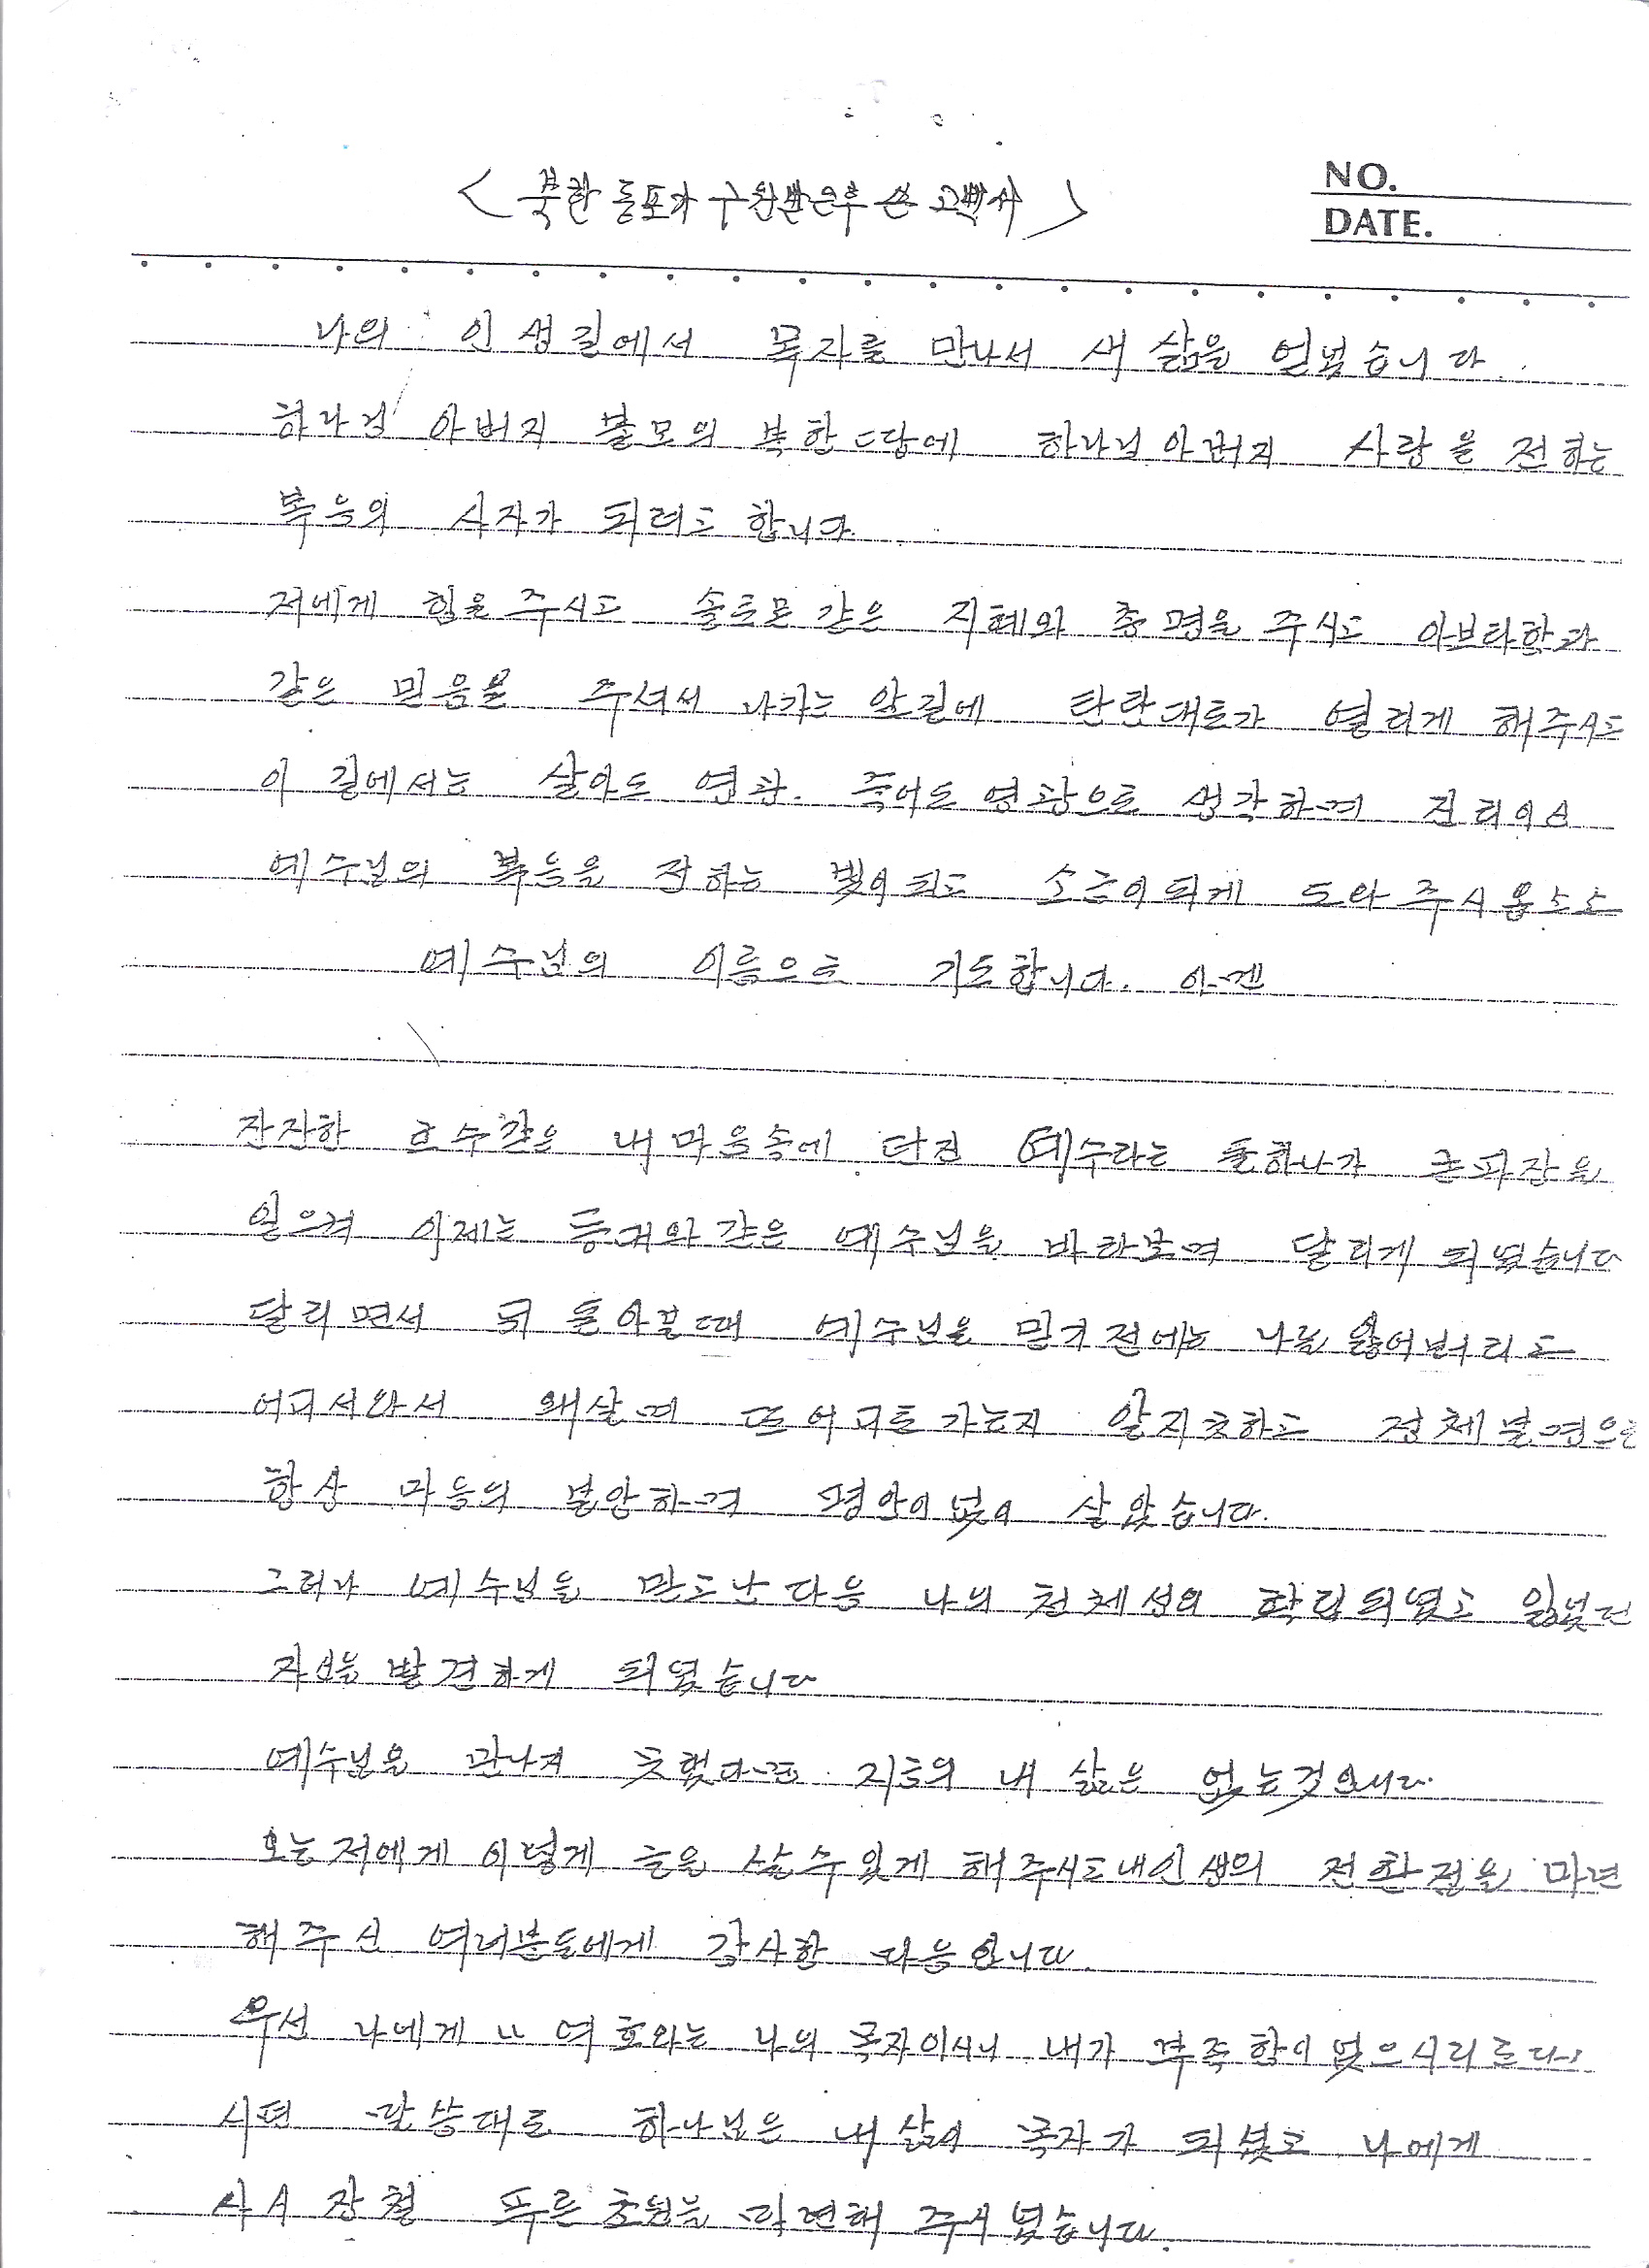 <북한동포가 구원받은후 쓴 고백서>
NO.
DATE.
나의 인생길에서 목자를 만나서 새 삶을 얻넜습니다.
하나님 아버지 불모의 북한땅에 하나님아버지 사랑을 전하는
복음의 사자가 되려고 합니다.
저에게 힘을 주시고 솔로몬같은 지혜와 총명을 주시고 아브라함과
같은 믿음을 주셔서 나가는 앞길에 탄탄대로가 열리게 해주시고
이 길에서는 살아도 영광. 죽어도 영광으로 생각하며 진리이신
예수님의 복음을 전하는 빛이되고 소금이되게 도와주시옵소소
예수님의 이름으로 기도합니다. 아멘
잔잔한 호수같은 내마음속에 던진 예수라는 돌하나가 큰파장을
일으켜 이제는 등대와같은 예수님을 바라보며 달리게 되였습니다
달리면서 뒤 돌아볼때 예수님을 믿기전에는 나를 잃어버리고
어디서와서 왜살며 또어디로가는지 알지못하고 정체불명으로
항상 마음의 불안하며 평안이없이 살았습니다.
그러나 예수님을 만고난다음 나의 정체성의 확립되였고 잃넜던
자신을 발견하게 되였습니다
예수님을 만나지 못했다면 지금의 내 삶은 없는것입니다.
오늘저에게 이렇게 늘을 살수있게 해주시고내인생의 전환점을 마련
해주신 여러분들에게 감사한 마음입니다.
우선 나에게 "여호와는 나의 목자이시니 내가 부족함이없으시리로다"
시편 말씀대로 하나님은 내삶의 목자가 되셨고 나에게
사시장철 푸른초원을 마련해 주시였습니다.